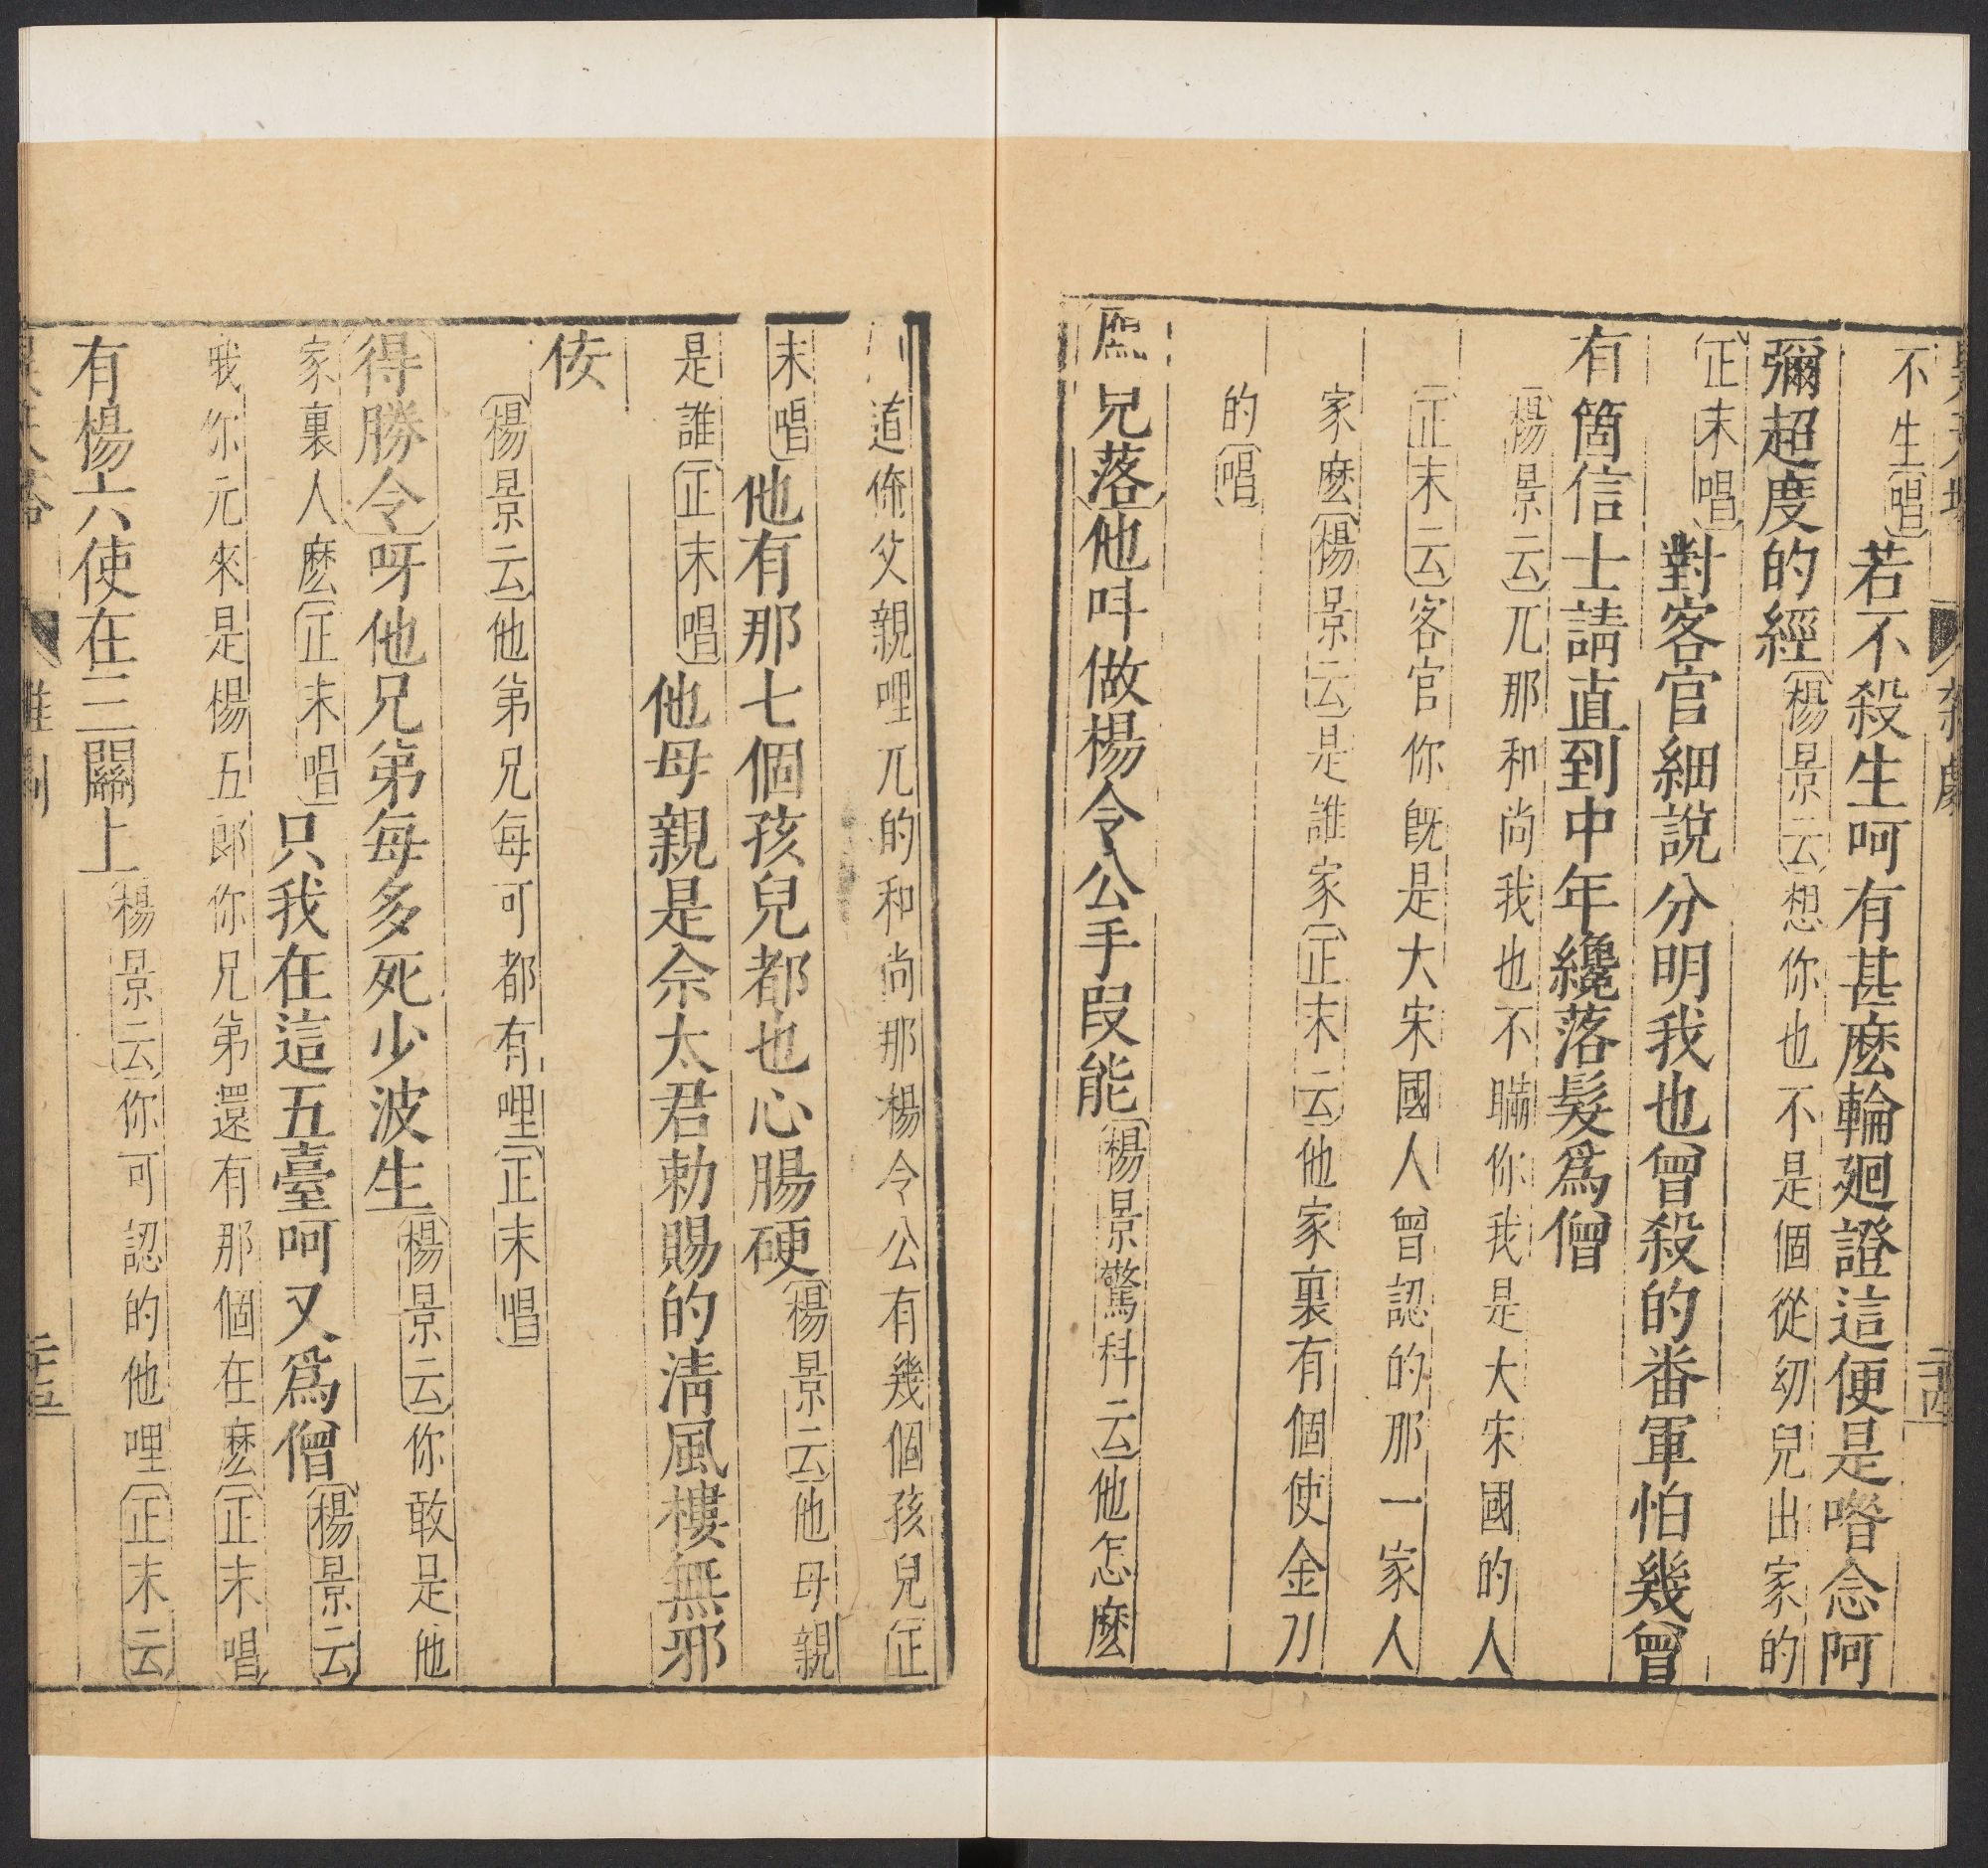 不生唱若不殺生呵有甚麽輪廻證這便是喒念阿
彌超度的經楊景云想你也不是個從幼兒出家的
正末唱對客官細說分明我也曾殺的番軍怕幾曾
有箇信士請直到中年纔落髮爲僧
楊景云兀那和尚我也不瞞你我是大宋國的人
正末云客官你旣是大宋國人曾認的那一家人
家麽楊景云是誰家正末云他家裏有個使金刀
的唱
兄落他叫做楊令公手叚能楊景驚科云他怎麽
道俺父親哩兀的和尚那楊令公有幾個孩兒正
末唱他有那七個孩兒都也心腸硬楊景云他母親
是誰正末唱他母親是佘太君勅賜的清風樓無邪
侫
楊景云他弟兄每可都有哩正末唱
得勝令呀他兄弟每多死少波生楊景云你敢是他
家裏人麽正末唱只我在這五臺呵又爲僧楊景云
哦你元來是楊五郎你兄弟還有那個在麽正末唱
有楊六使在三關上楊景云你可認的他哩正末云